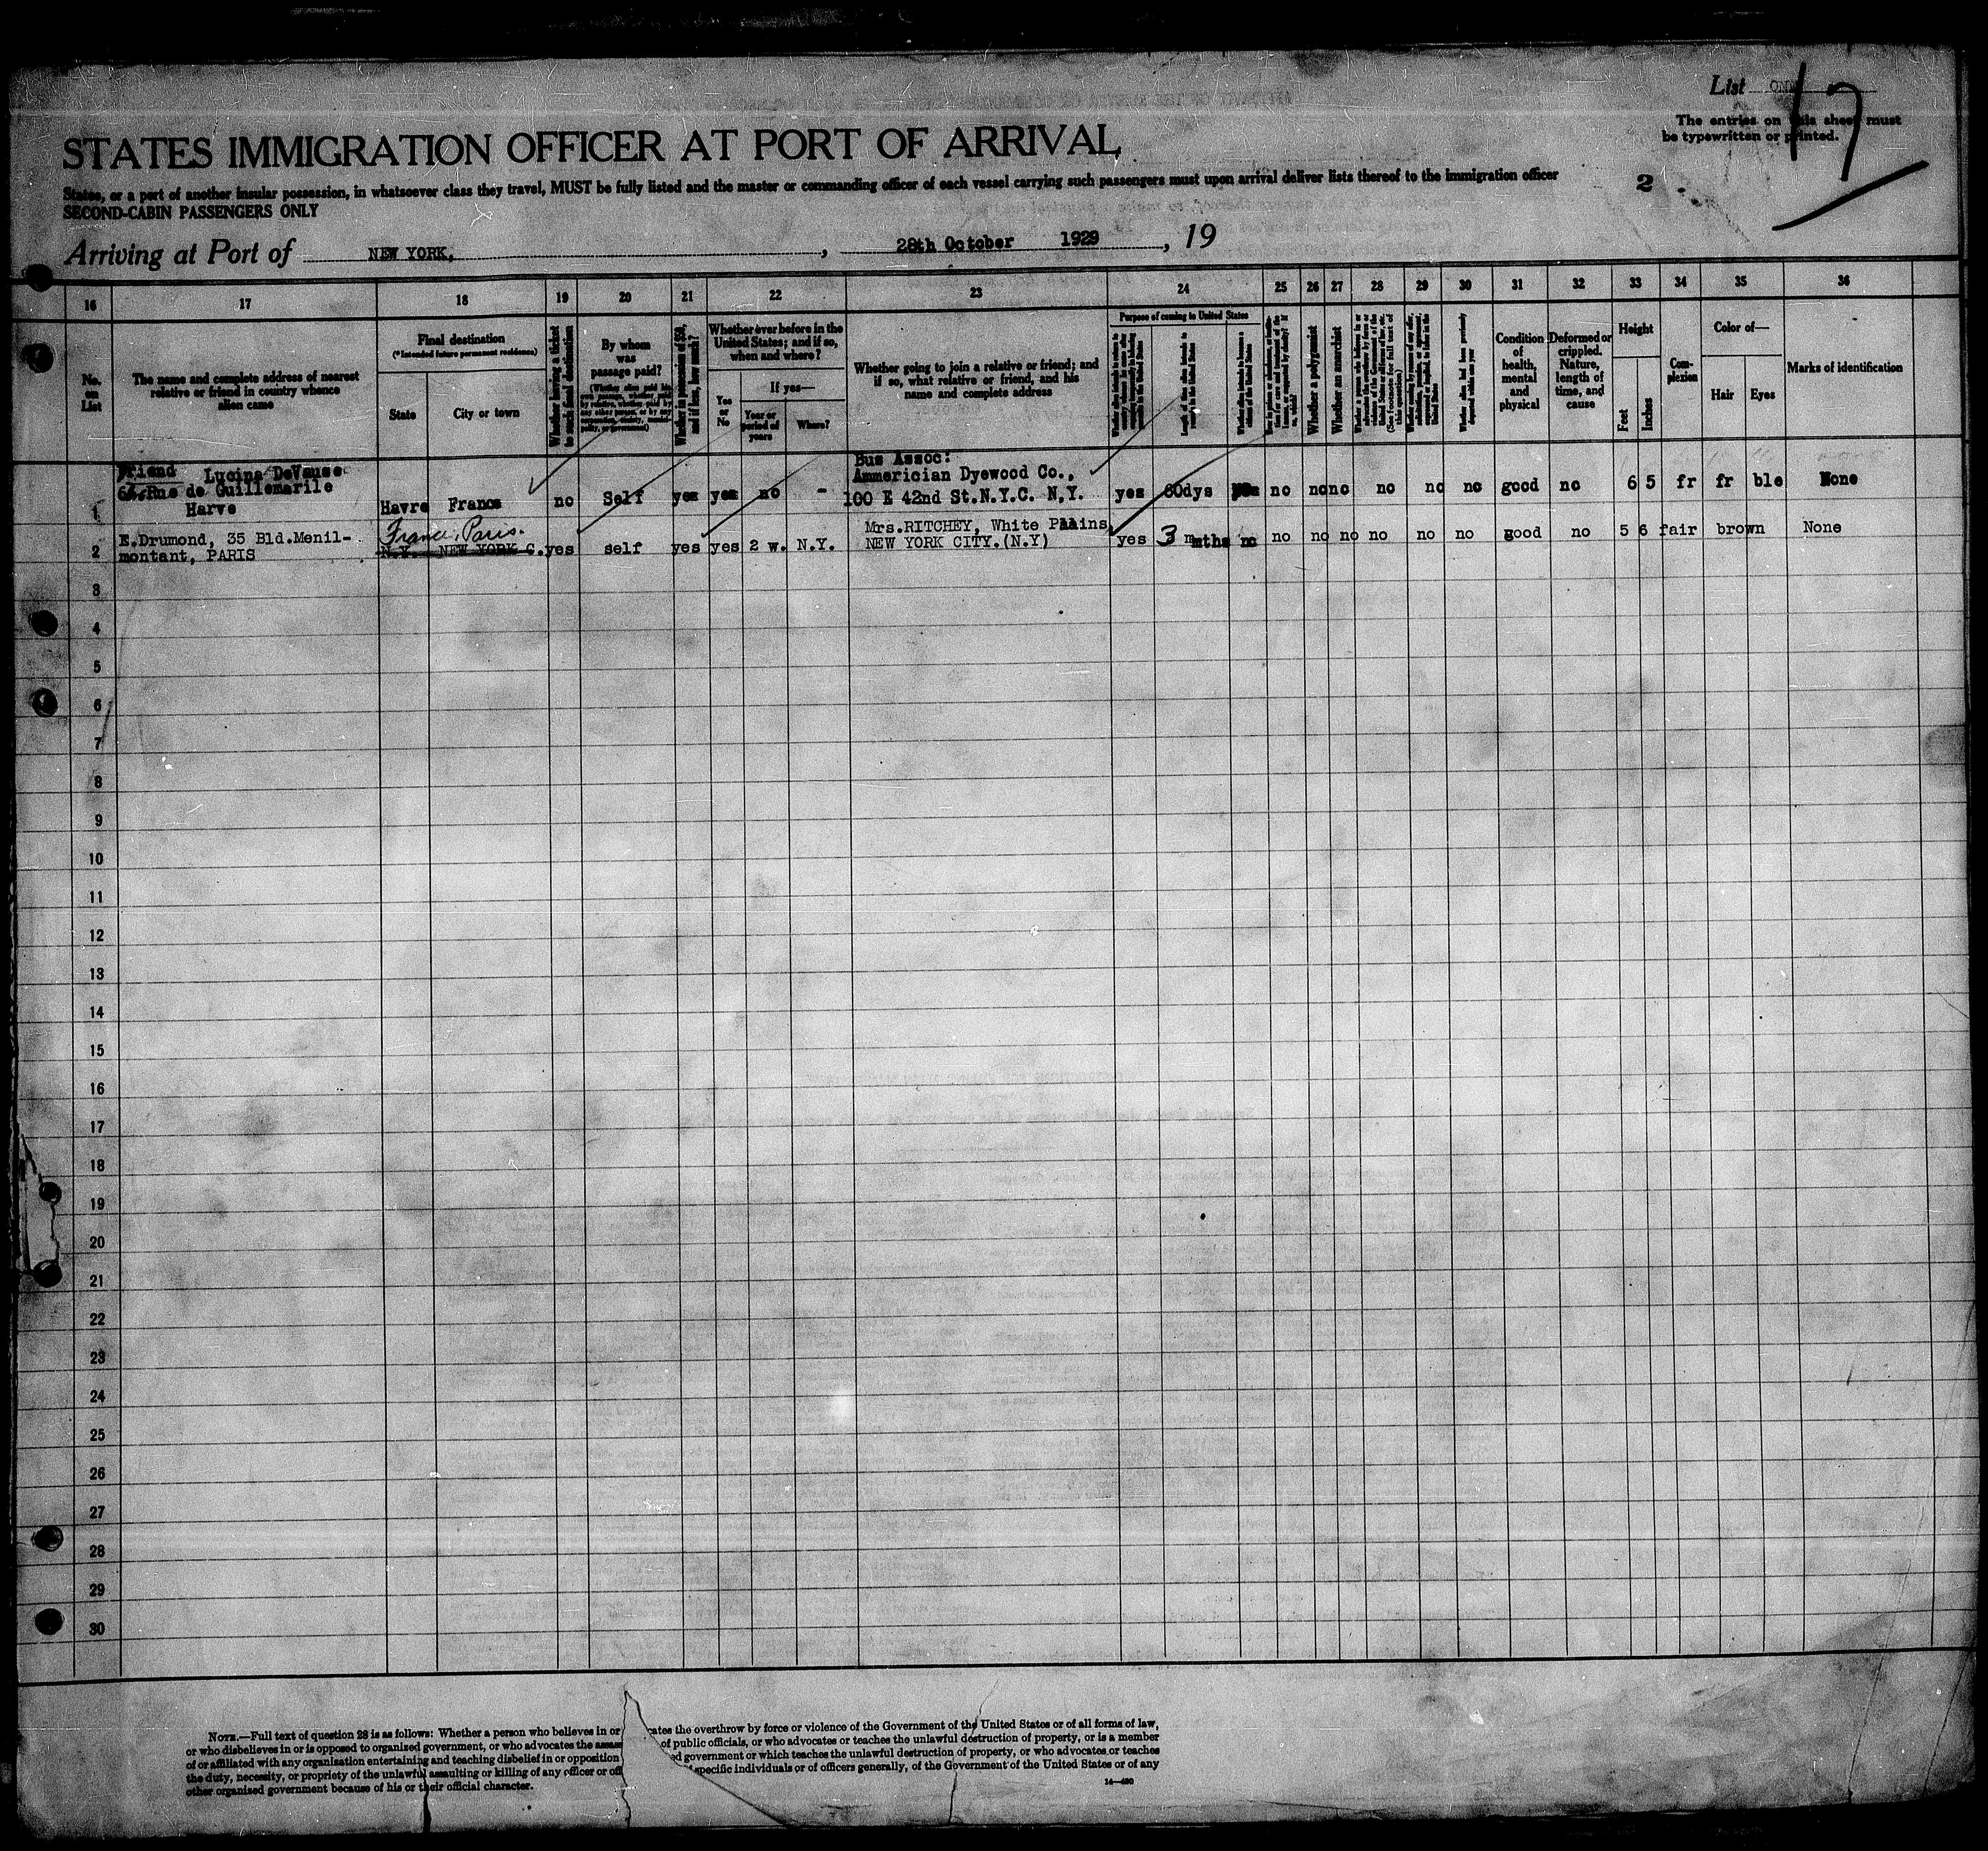 List ONE
17
The entries on this sheet must
be typewritten or printed.
STATES IMMIGRATION OFFICER AT PORT OF ARRIVAL
States, or a part of another insular possession, in whatsoever class they travel, MUST be fully listed and the master or commanding officer of each vessel carrying such passengers must upon arrival deliver lists thereof to the immigration officer
2
SECOND-CABIN PASSENGERS ONLY
Arriving at Port of NEW YORK, , 28th October 1929 , 19
16 17 18 19 20 21 22 23 24 25 26 27 28 29 30 31 32 33 34 35 36
No. on List
The name and complete address of nearest relative or friend in country whence alien came
Final destination
(*Intended future permanent residence)
State
City or town
Whether having a ticket to such final destination
By whom was passage paid?
Whether in possession of $50, and if less, how much?
Whether ever before in the United States; and if so, when and where?
Yes or No
If yes—
Year or period of years
Where?
Whether going to join a relative or friend; and if so, what relative or friend, and his name and complete address
Purpose of coming to United States
Length of time alien intends to
Whether a polygamist
Whether an anarchist
Condition of health, mental and physical
Deformed or crippled. Nature, length of time, and cause
Height
Feet
Inches
Complexion
Color of—
Hair
Eyes
Marks of identification
1
Friend Lucina DeVause
64, Rue de Guillemarile
Harve
Havre France no Self yes yes no -
Bus Assoc:
Ammerician Dyewood Co.,
100 E 42nd St.N.Y.C. N.Y.
yes 60dys no no no no no no good no 6 5 fr fr ble None
2
E.Drumond, 35 Bld.Menil-
montant, PARIS
France, Paris.
N.Y. NEW YORK C. yes self yes yes 2 w. N.Y.
Mrs.RITCHEY, White Plains
NEW YORK CITY.(N.Y)
yes 3 mnths no no no no no no no good no 5 6 fair brown None
3
4
5
6
7
8
9
10
11
12
13
14
15
16
17
18
19
20
21
22
23
24
25
26
27
28
29
30
NOTE.—Full text of question 28 is as follows: Whether a person who believes in or cates the overthrow by force or violence of the Government of the United States or of all forms of law,
or who disbelieves in or is opposed to organized government, or who advocates the assas of public officials, or who advocates or teaches the unlawful destruction of property, or is a member
of or affiliated with any organization entertaining and teaching disbelief in or opposition ed government or which teaches the unlawful destruction of property, or who advocates or teaches
the duty, necessity, or propriety of the unlawful assaulting or killing of any officer or off specific individuals or of officers generally, of the Government of the United States or of any
other organized government because of his or their official character.
14—480